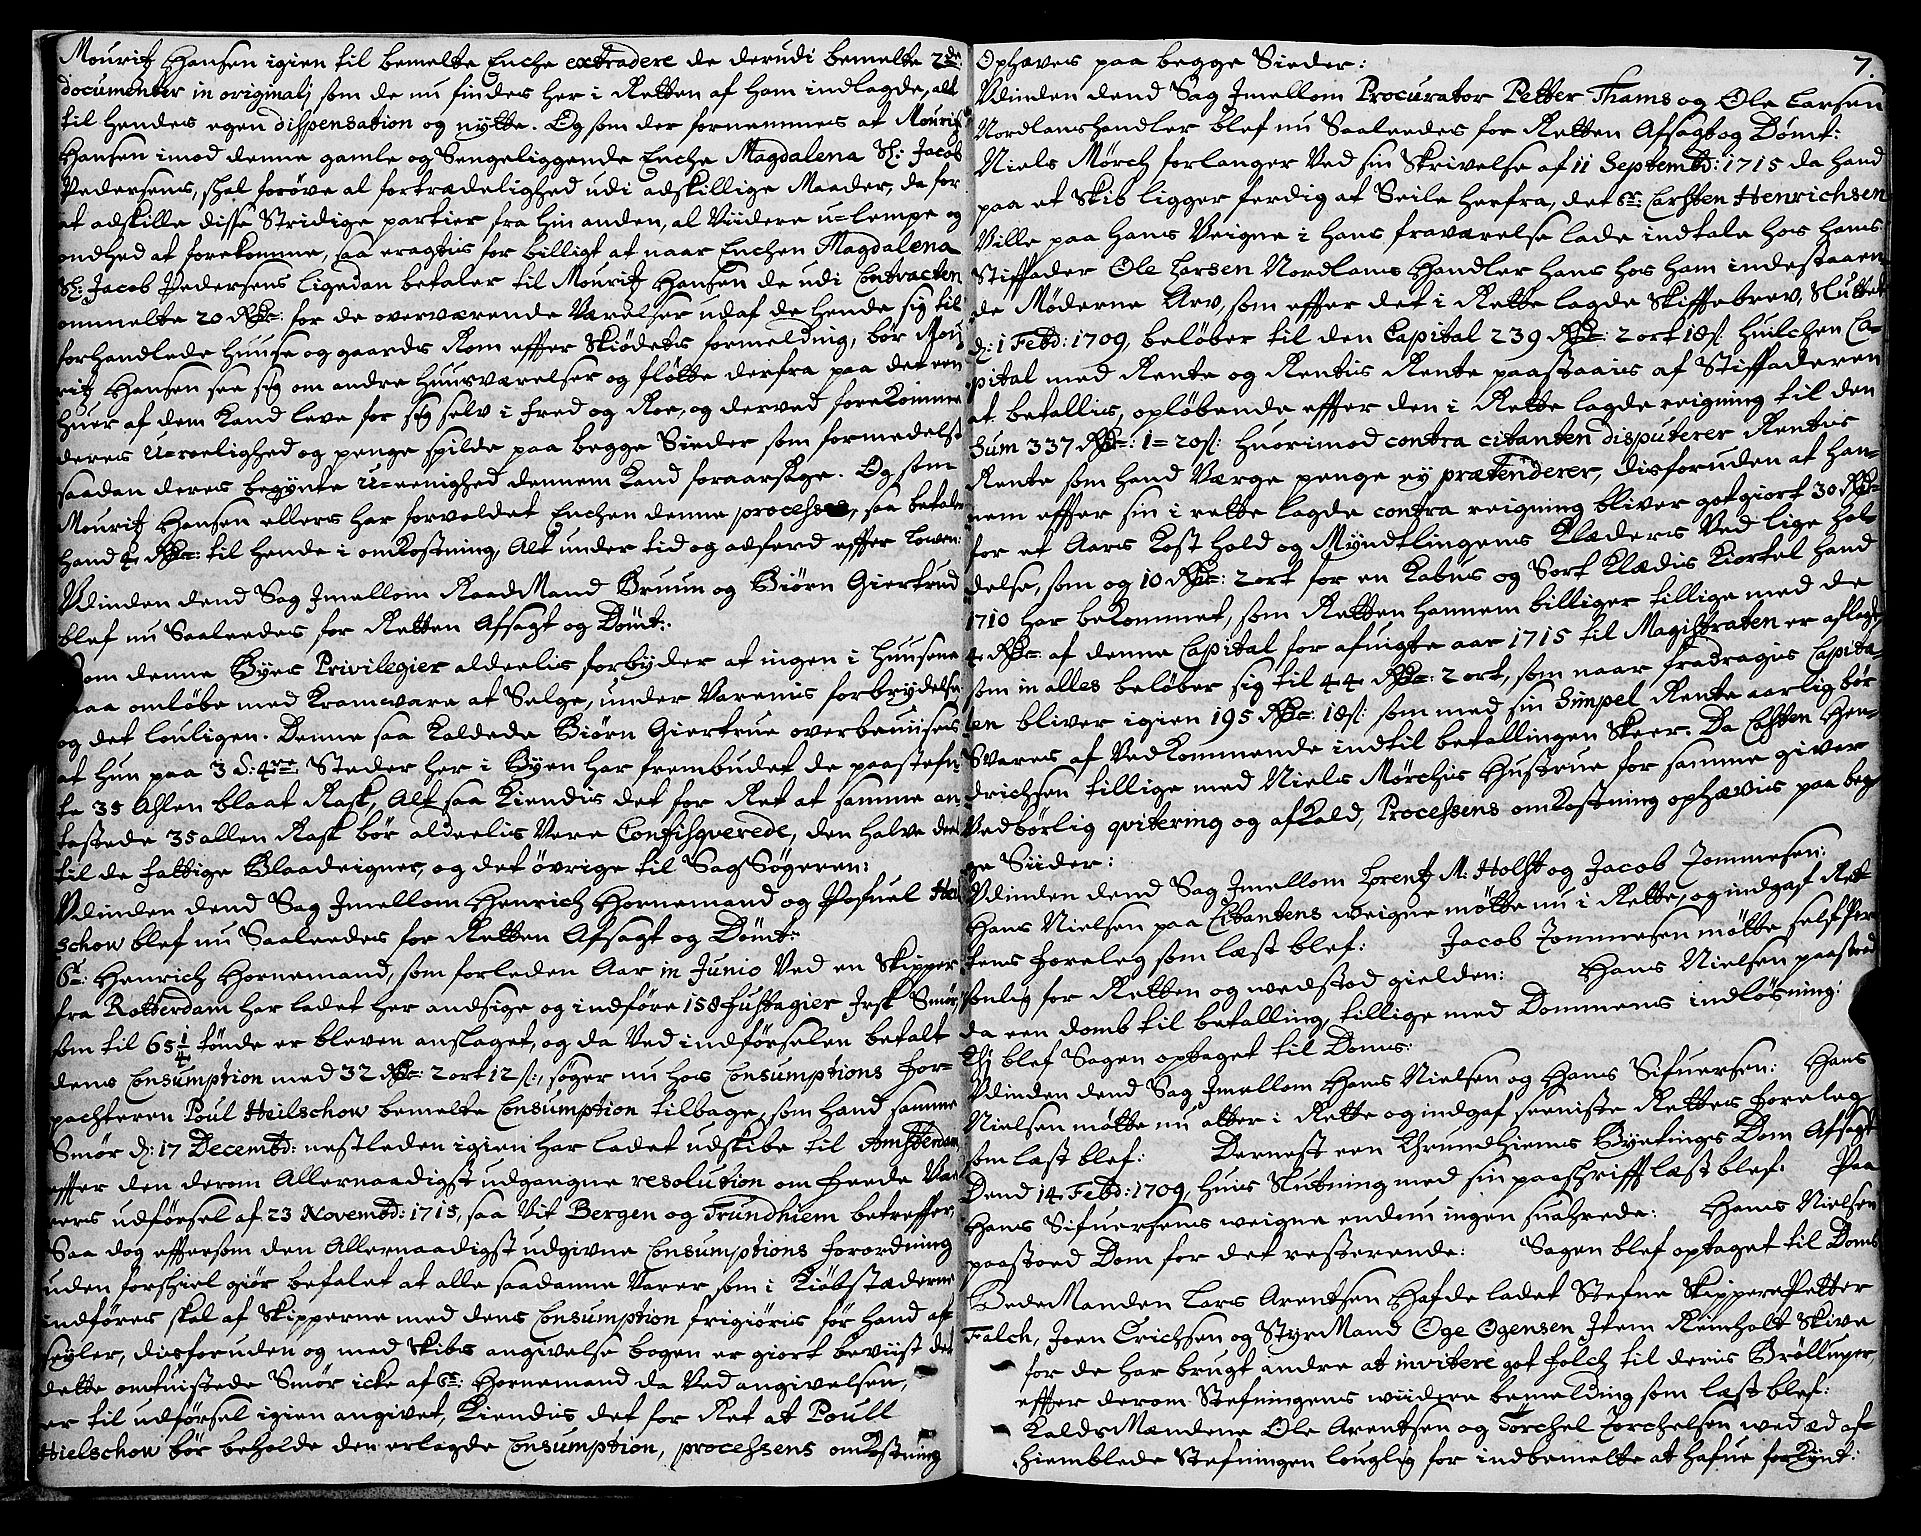 Mouritz Hansen igien til bemelte Enche extradere de derudi bemelte 2de
documenter in originali som de nu findes her i Retten af ham indlagde, alt
til hendes egen disspensation og nytte. Og som der fornemmes at Mouritz
Hansen imod denne gamle og Sengeliggende Enche Magdalena Sl: Jacob
Pedersens, skal forøve al fortrædelighed udi adskillige Maader, da for
at adskille disse Stridige partier fra hin anden, al Viidere u-lempe og
ondhed at forekomme, saa eragtis for billigt at naar Enchen Magdalena
Sl: Jacob Pedersens ligedan betaler til Mouritz Hansen de udi Contracten
ommelte 20 Rdr: for de overværende Værelser udaf de hende sig til
forhandlede Huuse og gaards Rom effter Skiødetis formelding, bør Mou
ritz Hansen see sig om andre huusværelser og fløtte derfra paa det een
huer af dem kand leve for sig selv i fred og Roe, og derved forekomme
deres U-roelighed og penge spilde paa begge Sieder som formedelst
saadan deres begynte U-eenighed dennem kand foraarsage. Og som
Mouritz Hansen ellers har forvoldet Enchen denne process, saa betaler
hand 4 Rdr: til hende i omkostning, Alt under tid og adferd effter Lowen:
Udinden dend Sag Imellom RaadMand Bruun og Biørn Giertrud
blef nu Saaleedes for Retten Afsagt og Dømt:
Som denne Byes Privilegier aldeelis forbyder at ingen i Huusene
maa omløbe med Kramware at Selge, under Varenis forbrydelse
og det louligen. Denne saa kaldede Biørn Giertrue overbeviises
at hun paa 3 á 4re Steder her i Byen har frembudet de paastefn-
te 35 Allen blaat Rask, Alt saa kiendis det for Ret at samme an
tastede 35 allen Rask bør aldeelis Vere Confisqverede, den halve deel
til de fattige Blaadeigner, og det øvrige til Sag Søgeren:
Udinden dend Sag Imellom Henrich Hornemand og Pofuel Hei
schow blef nu Saaleedes for Retten Afsagt og Dømt:
Sr: Henrich Hornemand, som forleden Aar in Junio Ved en Skipper
fra Rotterdam har ladet her andsige og indføre 158 fustagier Irsk Smør,
som til 65 1/4 tønde er bleven anslaget, og da Ved indførselen betalt
dens Consumption med 32 Rdr: 2 ort 12 s:, søger nu hos Consumptions for-
pachteren Poul Heilschow bemelte Consumption tilbage, som hand samme
Smør d: 17 Decembr: nestleden igien har ladet udskibe til Amsterdam
effter den derom Allernaadigst udgangne resolution om feede Va
rers udførsel af 23 Novembr: 1715, saa Vit Bergen og Trundhiem betreffer,
Saa dog efftersom den Allernaadigst udgivne Consumptions forordning
uden forskiel giør befalet at alle saadanne Varer som i Kiøbstæderne
indføres skal af Skipperne med dens Consumption frigiøris før hand af
seyler, disforuden og med Skibs angivelse bogen er giort beviist det
dette omtuistede Smør icke af Sr: Hornemand da Ved angivelsen,
er til udførsel igien angivet, kiendis det for Ret at Poull
Hielschow bør beholde den erlagde Consumption, processens omkostning
7.
Ophæves paa begge Sieder:
Udinden dend Sag Imellom Procurator Petter Thams og Ole Larsen
Nordlandshandler blef nu Saaleedes for Retten Afsagt og Dømt:
Niels Mørch forlanger Ved sin Skrivelse af 11 Septembr: 1715 da hand
paa et Skib ligger ferdig at Seile herfra, det Sr: Carsten Henrichsen
Ville paa hans Veigne i hans fraværelse lade indtale hos hans
Stiffader Ole Larsen Nordlans Handler hans hos ham indestaaen
de Møderne Arv, som effter det i Rette lagde Skiffebrev, Sluttet
d: 1 Febr: 1709, beløber til den Capital 239 Rdr: 2 ort 18 s: huilchen Ca-
pital med Rente og Rentis Rente paastaais af Stiffaderen
at betallis, opløbende effter den i Rette lagde reigning til den
Sum 337 Rdr: 1= 20 s: Huorimod contra citanten disputerer Rentis
Rente som hand Værge penge ey prætenderer, disforuden at han-
nem effter sin i rette lagde contra reigning bliver gotgiort 30 Rdr
for et Aars kost hold og Myndtlingens Klæders Ved lige hol
delse, som og 10 Rdr: 2 ort for en Kabus og Sort Klædis Kiortel hand
1710 har bekommet, som Retten hannem billiger tillige med de
4 Rdr af denne Capital for afuigte aar 1715 til Magistraten er aflagt,
som in alles beløber sig til 44 Rdr: 2 ort, som naar fradragis Capita-
len bliver igien 195 Rdr: 18 s: som med sin Simpel Rente aarlig bør
Svares af Vedkommende indtil betallingen skeer. Da Casten Hen-
drichsen tillige med Niels Mørchis Hustrue for samme giver
Vedbørlig qvitering og afkald, Processens omkostning ophævis paa beg
ge Siider:
Udinden dend Sag Imellom Lorentz M: Holst og Jacob Jommesen:
Hans Nielsen paa Citantens weigne møtte nu i Rette, og indgaf Ret
tens foreleg som læst blef: Jacob Jommesen møtte self Per
sonlig for Retten og wedstod gielden: Hans Nielsen paastod
da een domb til betalling, tillige med Dommens indløsning:
Thj blef Sagen optaget til Doms:
Udinden dend Sag Imellom Hans Nielsen og Hans Sifuersen: Hans
Nielsen møtte nu atter i Rette og indgaf seeniste Rettes foreleg
som læst blef: Dernest een Thrundhiems Byetings Dom Afsagt
Dend 14 Febr: 1709, huis Slutning med sin paaschrifft læst blef: Paa
Hans Sifuersens weigne endnu ingen suahrede: Hans Nielsen
paastoed Dom for det resterende: Sagen blef optaget til Doms
BedeManden Lars Arentsen Hafde ladet Stefne Skipper Petter
Falch, Joen Erichsen og StyrMand Oge Ogensen Item Reinholt Skive
for de har brugt andre at invitere got folch til deris Brøllupper,
effter derom Stefningens wiidere bemelding som læst blef:
KaldsMændene Ole Arentsen og Torchel Torchelsen wed æd af-
hiemblede Stefningen louglig for indbemelte at hafue forkynt: